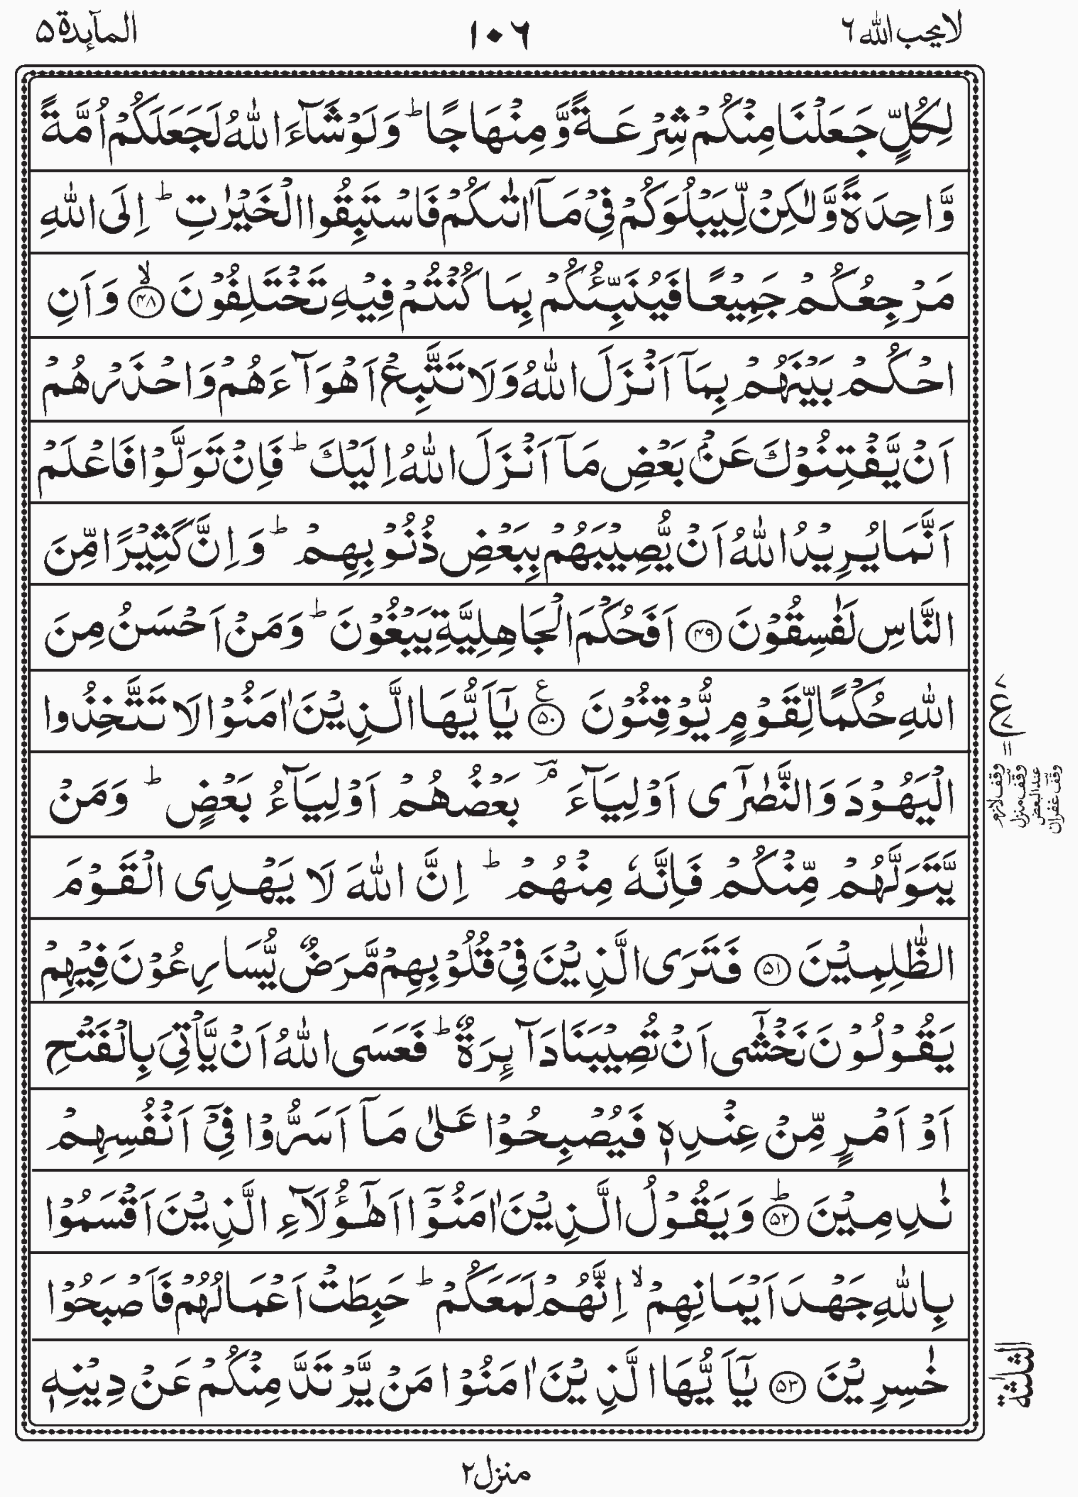 لا يحب الله ٦
١٠٦
المآئدة ٥
لِكُلٍّ جَعَلْنَا مِنْكُمْ شِرْعَةً وَّ مِنْهَاجًا ؕ وَ لَوْ شَآءَ اللّٰهُ لَجَعَلَكُمْ اُمَّةً
وَّاحِدَةً وَّ لٰكِنْ لِّيَبْلُوَكُمْ فِيْ مَاۤ اٰتٰىكُمْ فَاسْتَبِقُوا الْخَيْرٰتِ ؕ اِلَى اللّٰهِ
مَرْجِعُكُمْ جَمِيْعًا فَيُنَبِّئُكُمْ بِمَا كُنْتُمْ فِيْهِ تَخْتَلِفُوْنَ ۙ﴿۴۸﴾ وَ اَنِ
احْكُمْ بَيْنَهُمْ بِمَاۤ اَنْزَلَ اللّٰهُ وَ لَا تَتَّبِعْ اَهْوَآءَهُمْ وَ احْذَرْهُمْ
اَنْ يَّفْتِنُوْكَ عَنْۢ بَعْضِ مَاۤ اَنْزَلَ اللّٰهُ اِلَيْكَ ؕ فَاِنْ تَوَلَّوْا فَاعْلَمْ
اَنَّمَا يُرِيْدُ اللّٰهُ اَنْ يُّصِيْبَهُمْ بِبَعْضِ ذُنُوْبِهِمْ ؕ وَ اِنَّ كَثِيْرًا مِّنَ
النَّاسِ لَفٰسِقُوْنَ ﴿۴۹﴾ اَفَحُكْمَ الْجَاهِلِيَّةِ يَبْغُوْنَ ؕ وَ مَنْ اَحْسَنُ مِنَ
اللّٰهِ حُكْمًا لِّقَوْمٍ يُّوْقِنُوْنَ ﴿۵۰﴾ع يٰۤاَيُّهَا الَّذِيْنَ اٰمَنُوْا لَا تَتَّخِذُوا
الْيَهُوْدَ وَ النَّصٰرٰۤى اَوْلِيَآءَ ۘؔ بَعْضُهُمْ اَوْلِيَآءُ بَعْضٍ ؕ وَ مَنْ
يَّتَوَلَّهُمْ مِّنْكُمْ فَاِنَّهٗ مِنْهُمْ ؕ اِنَّ اللّٰهَ لَا يَهْدِى الْقَوْمَ
الظّٰلِمِيْنَ ﴿۵۱﴾ فَتَرَى الَّذِيْنَ فِيْ قُلُوْبِهِمْ مَّرَضٌ يُّسَارِعُوْنَ فِيْهِمْ
يَقُوْلُوْنَ نَخْشٰۤى اَنْ تُصِيْبَنَا دَآئِرَةٌ ؕ فَعَسَى اللّٰهُ اَنْ يَّاْتِيَ بِالْفَتْحِ
اَوْ اَمْرٍ مِّنْ عِنْدِهٖ فَيُصْبِحُوْا عَلٰى مَاۤ اَسَرُّوْا فِيْۤ اَنْفُسِهِمْ
نٰدِمِيْنَ ؕ﴿۵۲﴾ وَ يَقُوْلُ الَّذِيْنَ اٰمَنُوْۤا اَهٰۤؤُلَآءِ الَّذِيْنَ اَقْسَمُوْا
بِاللّٰهِ جَهْدَ اَيْمَانِهِمْ ۙ اِنَّهُمْ لَمَعَكُمْ ؕ حَبِطَتْ اَعْمَالُهُمْ فَاَصْبَحُوْا
خٰسِرِيْنَ ﴿۵۳﴾ يٰۤاَيُّهَا الَّذِيْنَ اٰمَنُوْا مَنْ يَّرْتَدَّ مِنْكُمْ عَنْ دِيْنِهٖ
ع
وقف لازم
وقف منزل
عند البعض
وقف غفران
الثلثة
منزل ٢